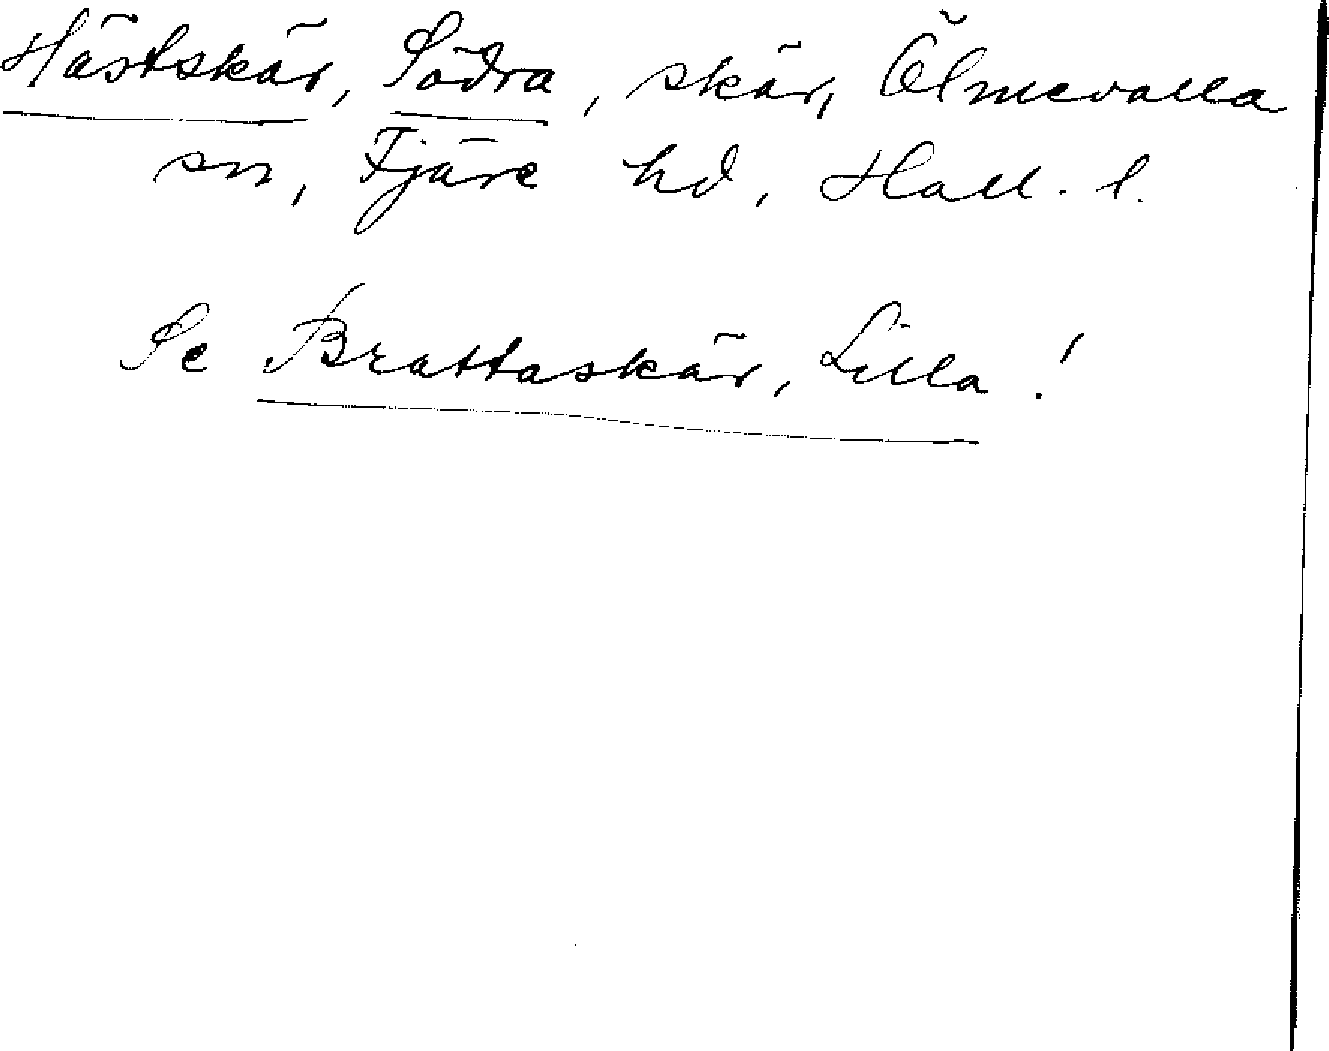 Hästskär, Södra, skär, Ölmevalla
sn, Fjäre hd, Hall. l.
Se Brattaskär, Lilla!